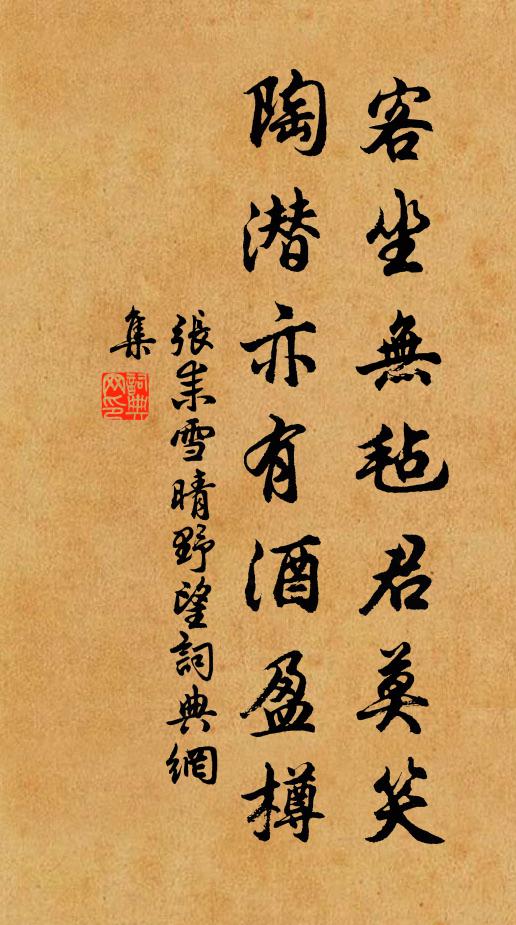 客坐無毡君莫笑
陶潜亦有酒盈樽
張耒雪晴野望詞典網
集
詞典
网印